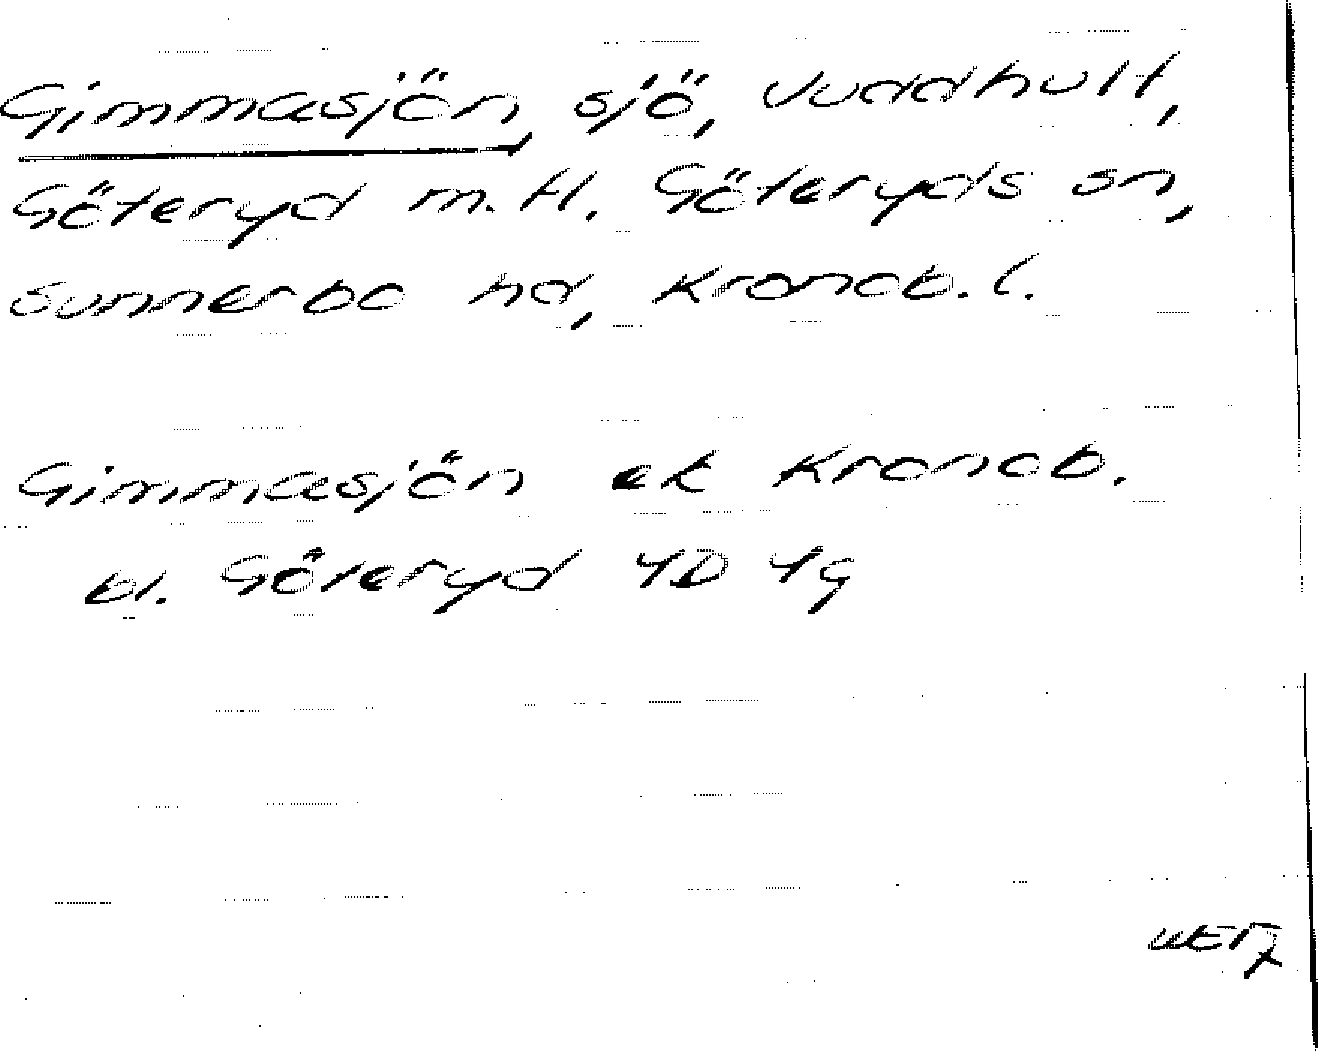 Gimmasjön, sjö, Vuddhult,
Göteryd m.fl. Göteryds sn,
Sunnerbo hd, Kronob. l.
Gimmasjön ek Kronob.
bl. Göteryd 4D 4g